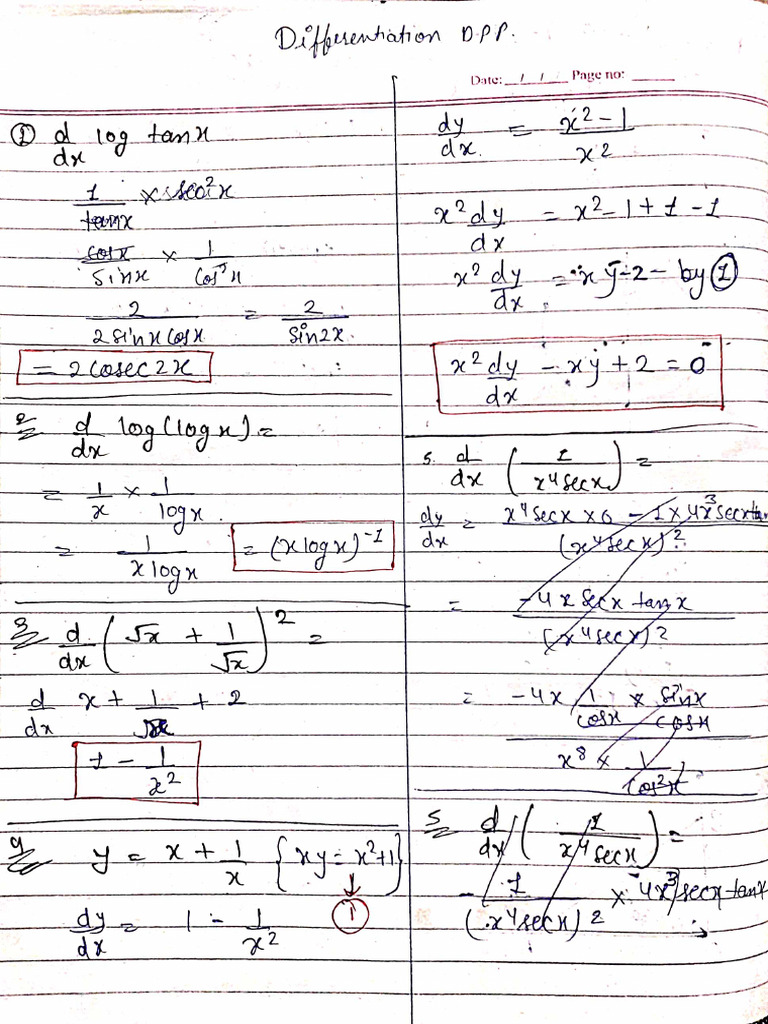 Differentiation D.P.P.
Date: __/__/__ Page no: ______
① d/dx log tanx
1/tanx × sec²x
cosx/sinx × 1/cos²x
2/2sinxcosx = 2/sin2x
= 2cosec2x
2 d/dx log(logx) =
= 1/x × 1/logx
= 1/xlogx = (xlogx)⁻¹
3 d/dx (√x + 1/√x)² =
d/dx x + 1/x + 2
1 - 1/x²
4 y = x + 1/x {xy = x²+1}
↓ ①
dy/dx = 1 - 1/x²
dy/dx = x²-1/x²
x² dy/dx = x²-1+1-1
x² dy/dx = xy-2 - by ①
x² dy/dx - xy + 2 = 0
5. d/dx (1/x⁴secx) =
dy/dx = x⁴secx × 0 - 1×4x³secxtan/(x⁴secx)²
= -4x secx tanx/(x⁴secx)²
= -4x 1/cosx × sinx/cosx
x⁸ × 1/cos²x
5 d/dx (1/x⁴secx) =
- 1/(x⁴secx)² × 4x³secxtanx